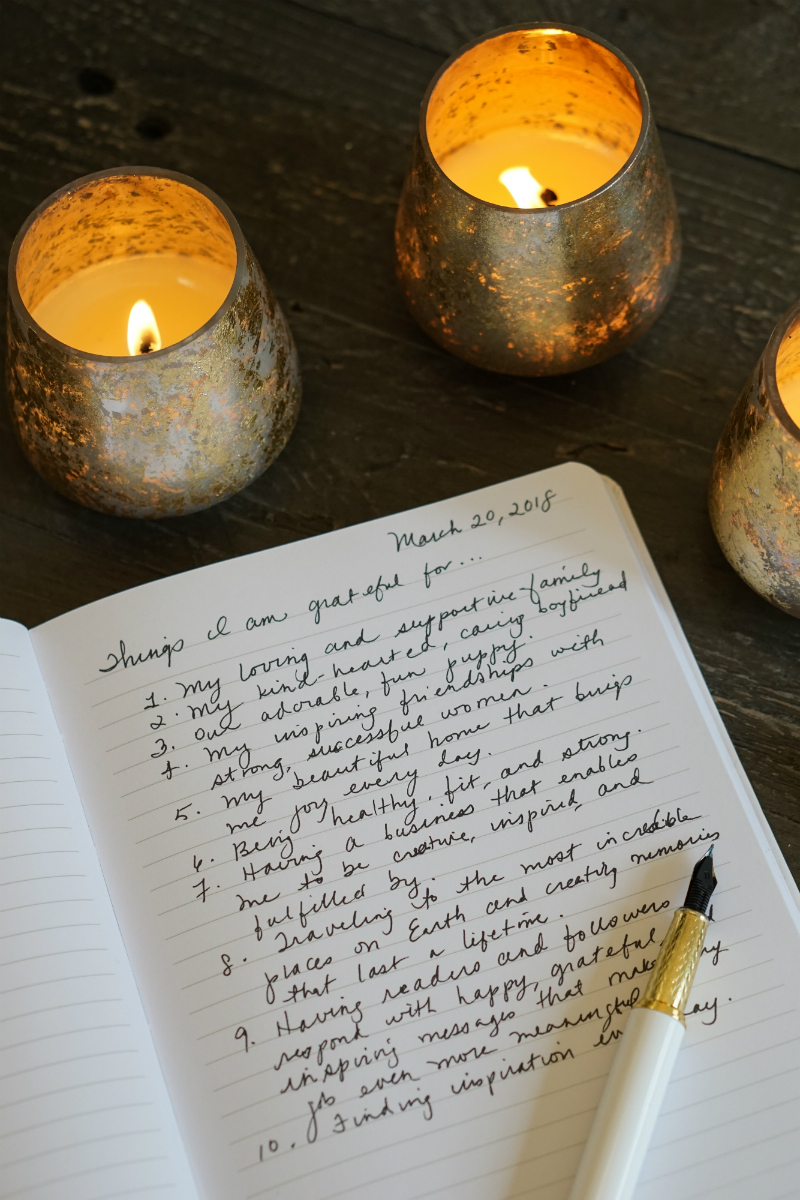 March 20, 2018
Things I am grateful for...
1. My loving and supportive family
2. My kind-hearted, caring boyfriend
3. Our adorable, fun puppy.
4. My inspiring friendships with
strong, successful women.
5. My beautiful home that brings
me joy every day.
6. Being healthy, fit, and strong.
7. Having a business that enables
me to be creative, inspired, and
fulfilled by.
8. Traveling to the most incredible
places on Earth and creating memories
that last a lifetime.
9. Having readers and followers
respond with happy, grateful,
inspiring messages that make my
job even more meaningful
10. Finding inspiration